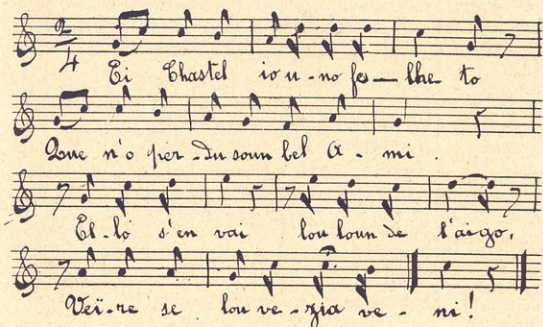 2/4
Ei Chastel io u-no fe-lhe to
Que n'o per-du soun bel A-mi.
El-lo s'en vai lou loun de l'aigo,
Veï-re se lou ve-zia ve-ni!